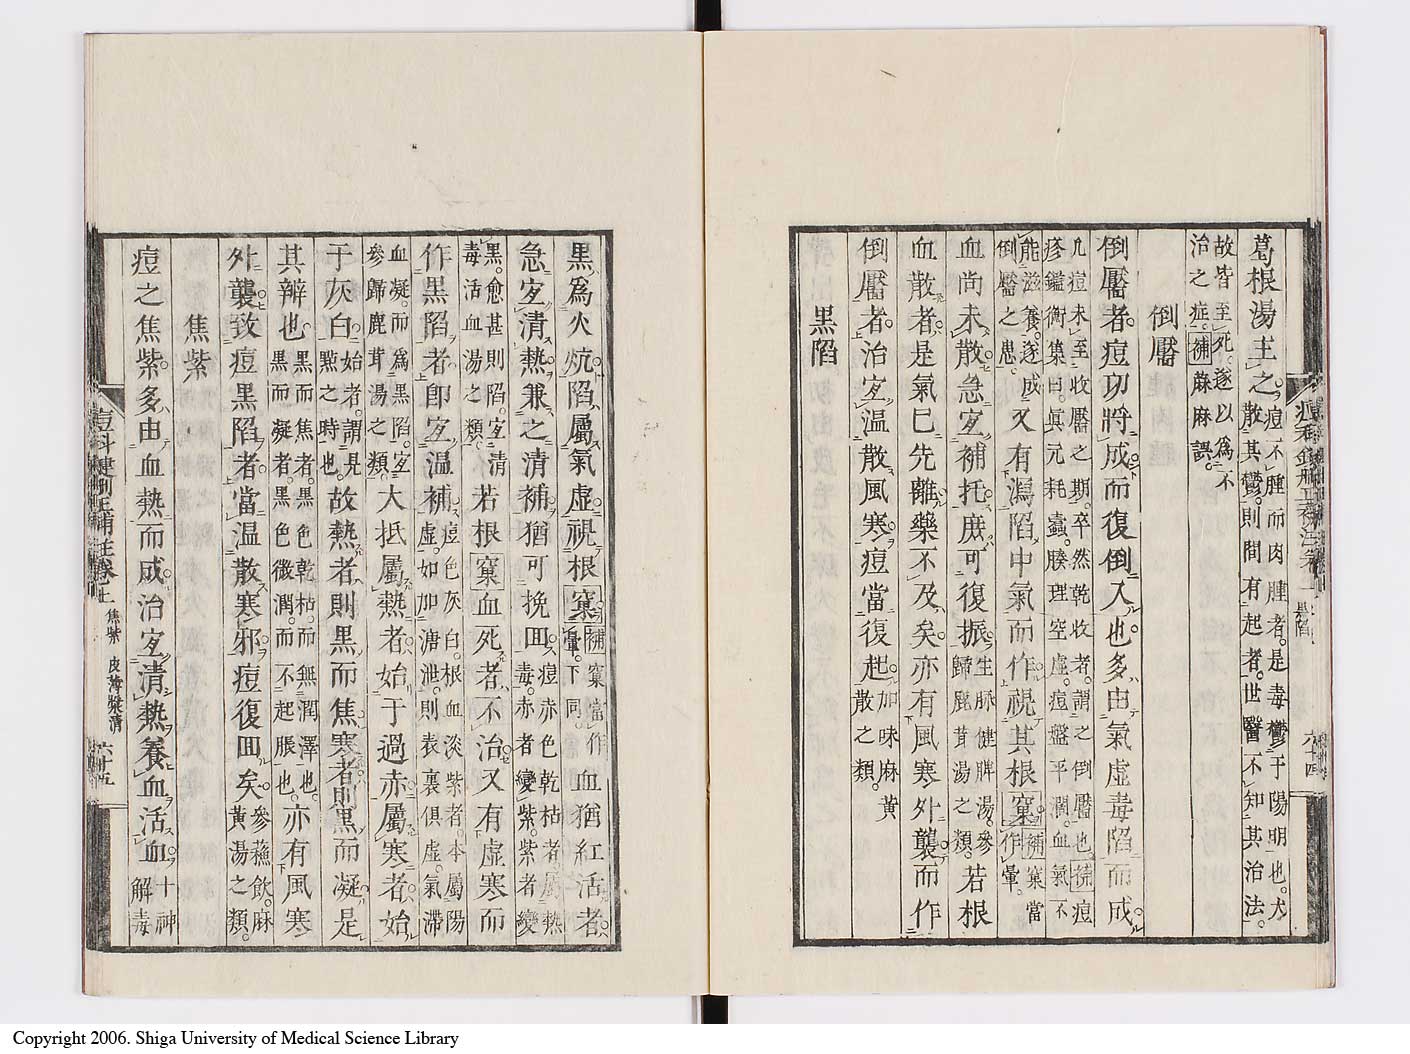 葛根湯主之痘不腫而肉腫者。是毒鬱于陽明也。犬
散其鬱。則間有起者。世醫不知其治法。
故皆至死。遂以為不
治之症。補麻麻誤。
倒靨
倒靨者。痘功將成而復倒入也。多由氣虛毒陷而成
凢痘未至收靨之期。卒然乾收者。謂之倒靨也疏痘
疹鑑衡集曰。眞元耗蠹。腠理空虛。痘盤平濶。血氣不
能滋養。遂成又有瀉陷中氣而作。視其根窠補窠當
倒靨之患。作暈。
血尚未散。急宜補托。庶可復振生脉健脾湯。參
歸鹿茸湯之類。若根
血散者。是氣已先離。藥不及矣。亦有風寒外襲而作
倒靨者。治宜温散風寒。痘當復起加味麻黄
散之類。
黒陷
黒為火炕。陷屬氣虛。視根窠補窠當作
暈。下同。血猶紅活者。
急宜清熱。兼之清補。猶可挽回。痘赤色乾枯者屬熱
毒。赤者變紫。紫者變
黒。愈甚則陷。宜清
毒活血湯之類。若根窠血死者。不治。又有虛寒而
作黒陷者。卽宜温補。痘色灰白。根血淡紫者。本屬陽
虛。如加溏泄。則表裏俱虛。氣滞
血凝。而為黒陷。宜
參歸鹿茸湯之類。大抵屬熱者。始于過赤。屬寒者。始
于灰白始者。謂見
點之時也。故熱者則黒而焦。寒者則黒而凝。是
其辨也黒而焦者。黒色乾枯。而無潤澤也。
黒而凝者。黒色微潤。而不起脹也。亦有風寒
外襲。致痘黒陷者。當温散寒邪。痘復回矣。參蘓飲。麻
黄湯之類。
焦紫
痘之焦紫。多由血熱而成。治宜清熱養血活血十神
解毒
焦紫 皮薄漿清
六十五
六十四
Copyright 2006. Shiga University of Medical Science Library